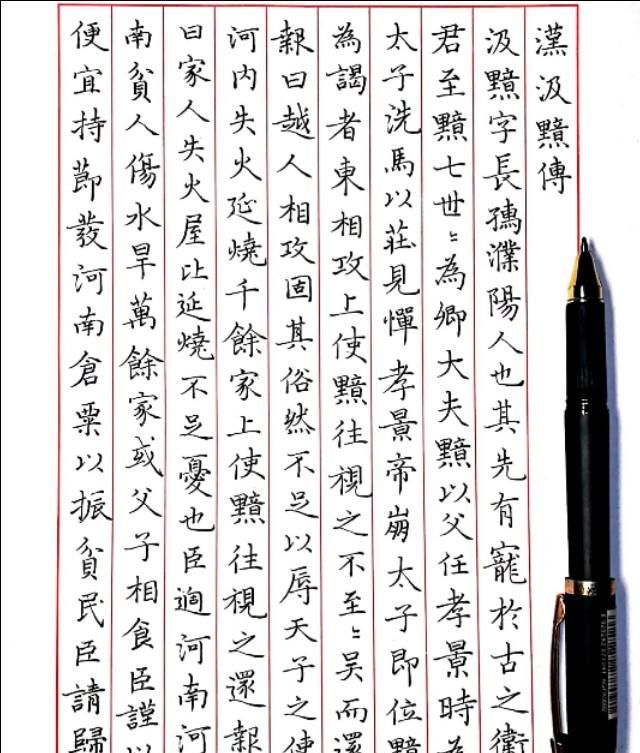 漢汲黯傳
汲黯字長孺濮陽人也其先有寵於古之衛
君至黯七世〻為卿大夫黯以父任孝景時
太子洗馬以莊見憚孝景帝崩太子即位黯
為謁者東相攻上使黯往視之不至〻吴而還
報曰越人相攻固其俗然不足以辱天子之使
河内失火延燒千餘家上使黯往視之還報
曰家人失火屋比延燒不足憂也臣過河南河
南貧人傷水旱萬餘家或父子相食臣謹以
便宜持節發河南倉粟以振貧民臣請歸